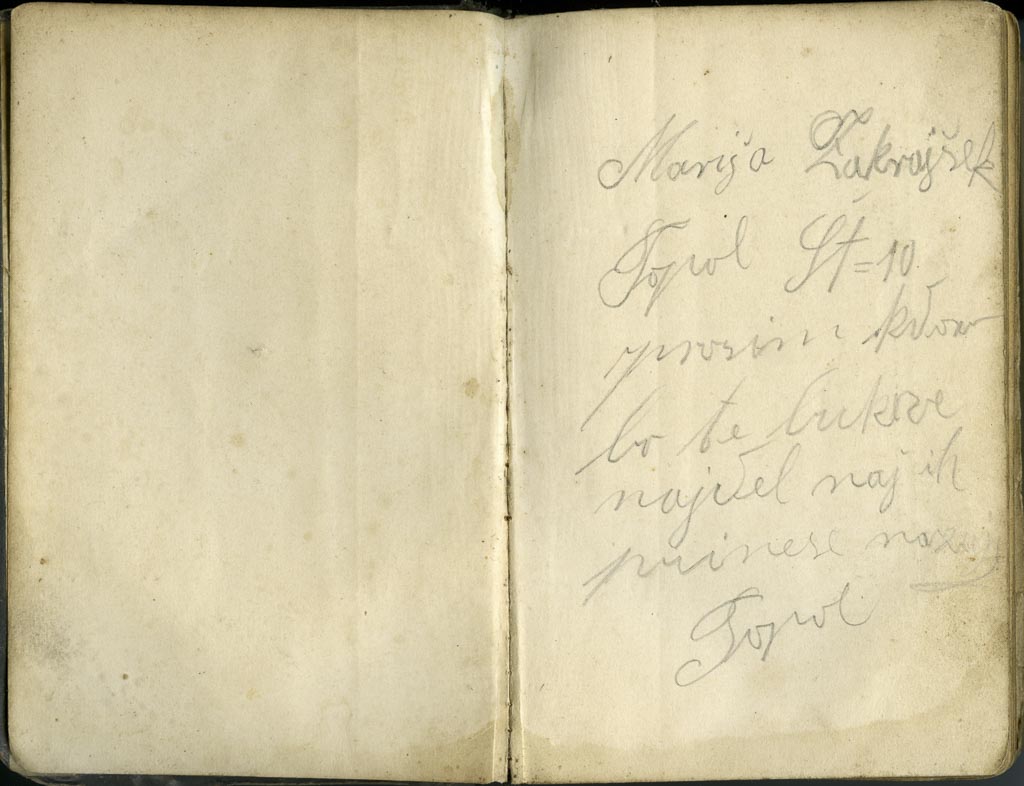 Marija Zakrajšek
Topol Št=10
prosim kdor
bo te bukve
najdel naj ih
prinese nazaj
Topol